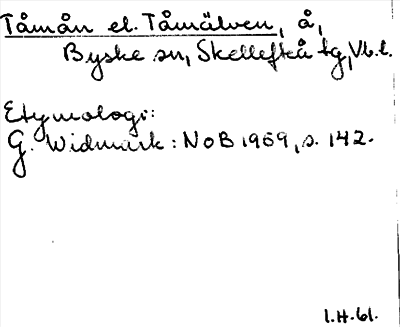 Tåmån el. Tåmälven, å,
Byske sn, Skellefteå tg, Vb. l.
Etymologi:
G. Widmark: NoB 1959, s. 142.
1.H.61.